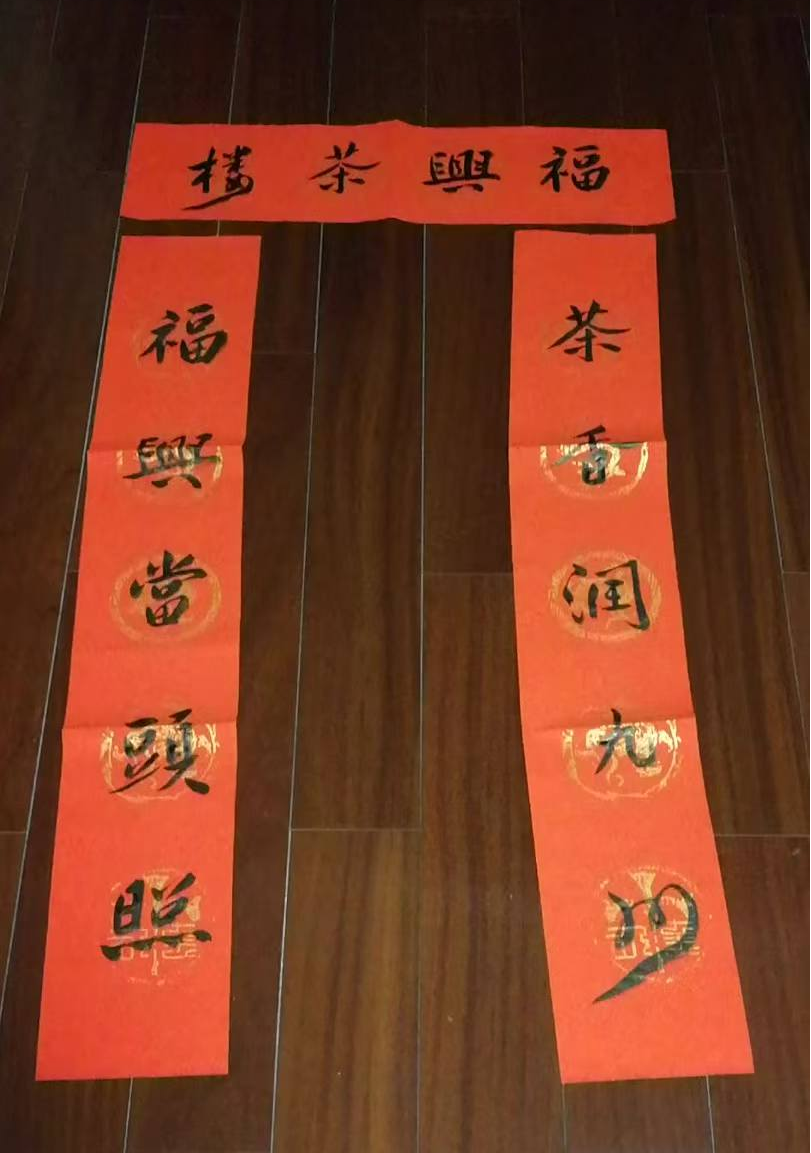 福興茶楼
茶香润九州
福興當頭照